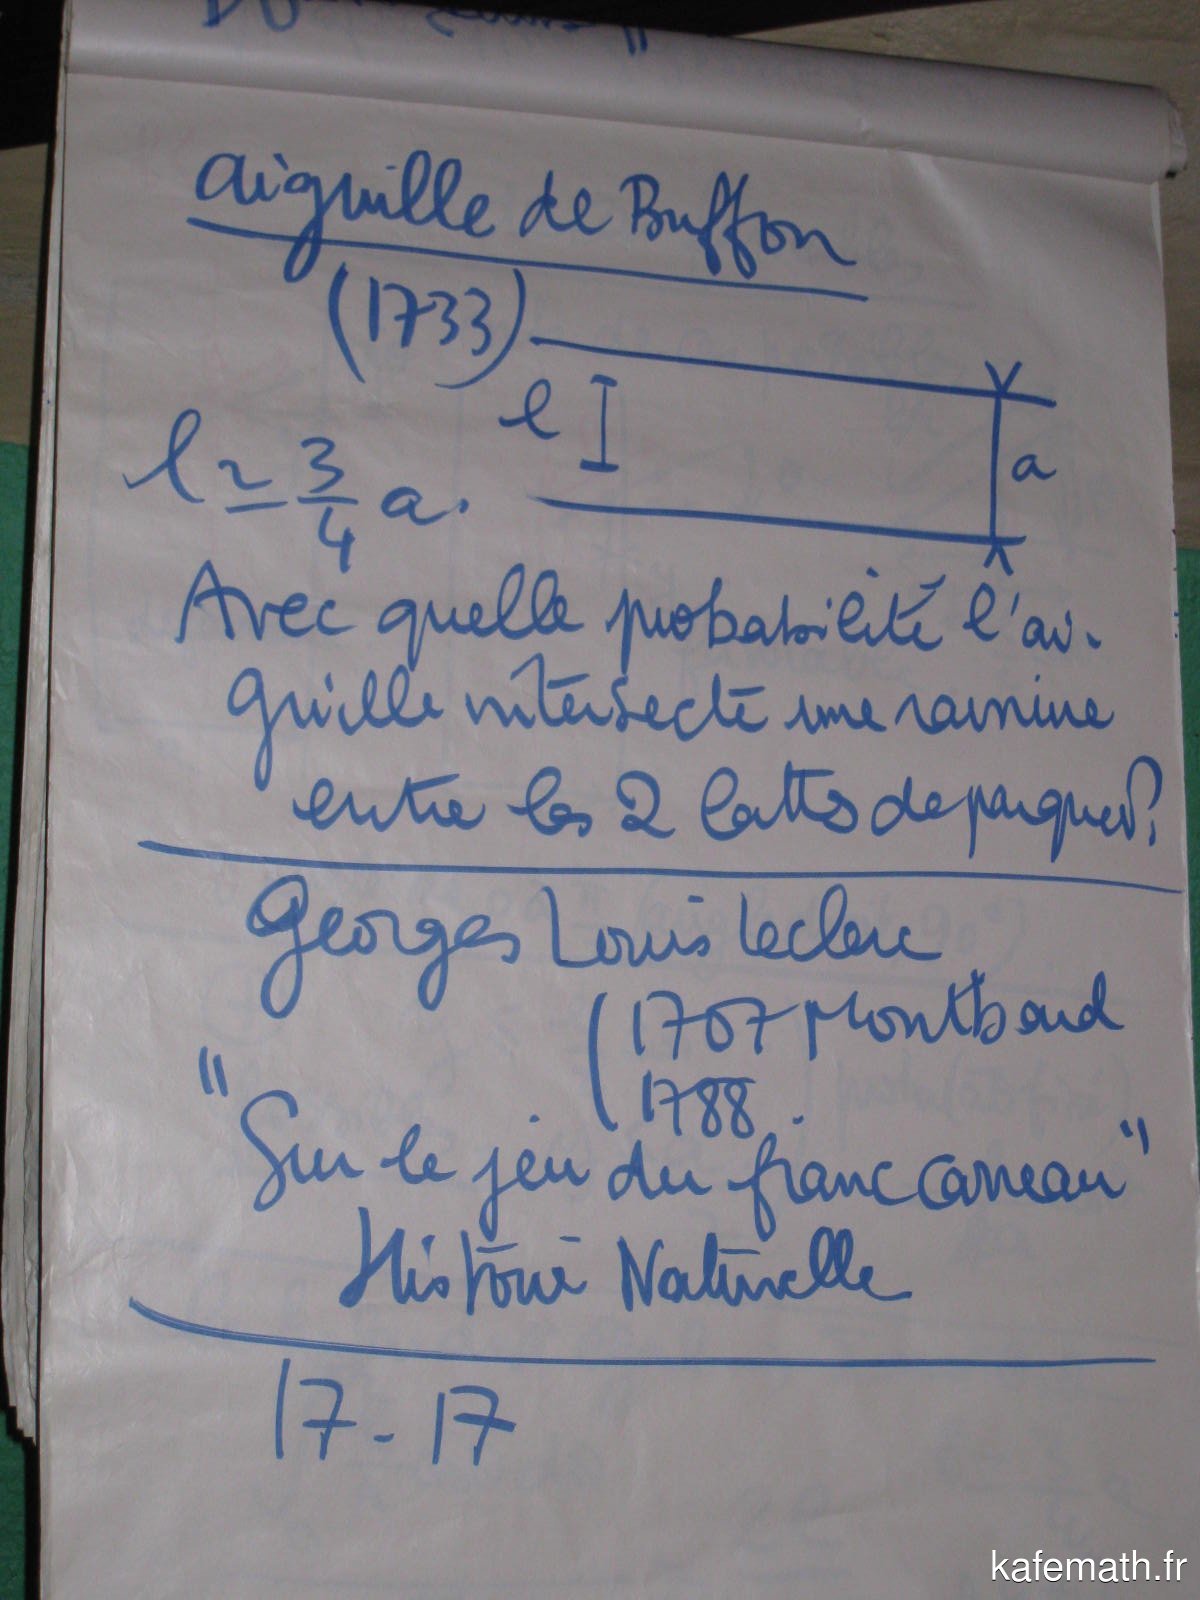 aiguille de Buffon
(1733)
l
a
l ≃ 3/4 a.
Avec quelle probabilité l'ai-
guille intersecte une rainure
entre les 2 lattes de parquet?
Georges Louis Leclerc
(1707 Montbard
1788.
"Sur le jeu du franc carreau"
Histoire Naturelle
17-17
kafemath.fr